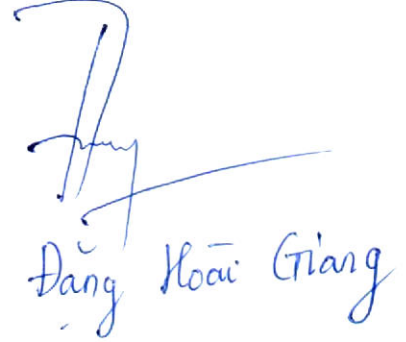 Đặng Hoài Giang